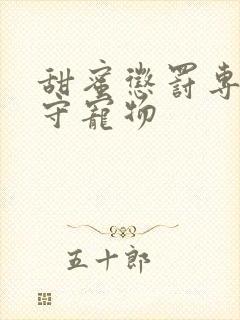 甜蜜懲罰専
守寵物
五十郎